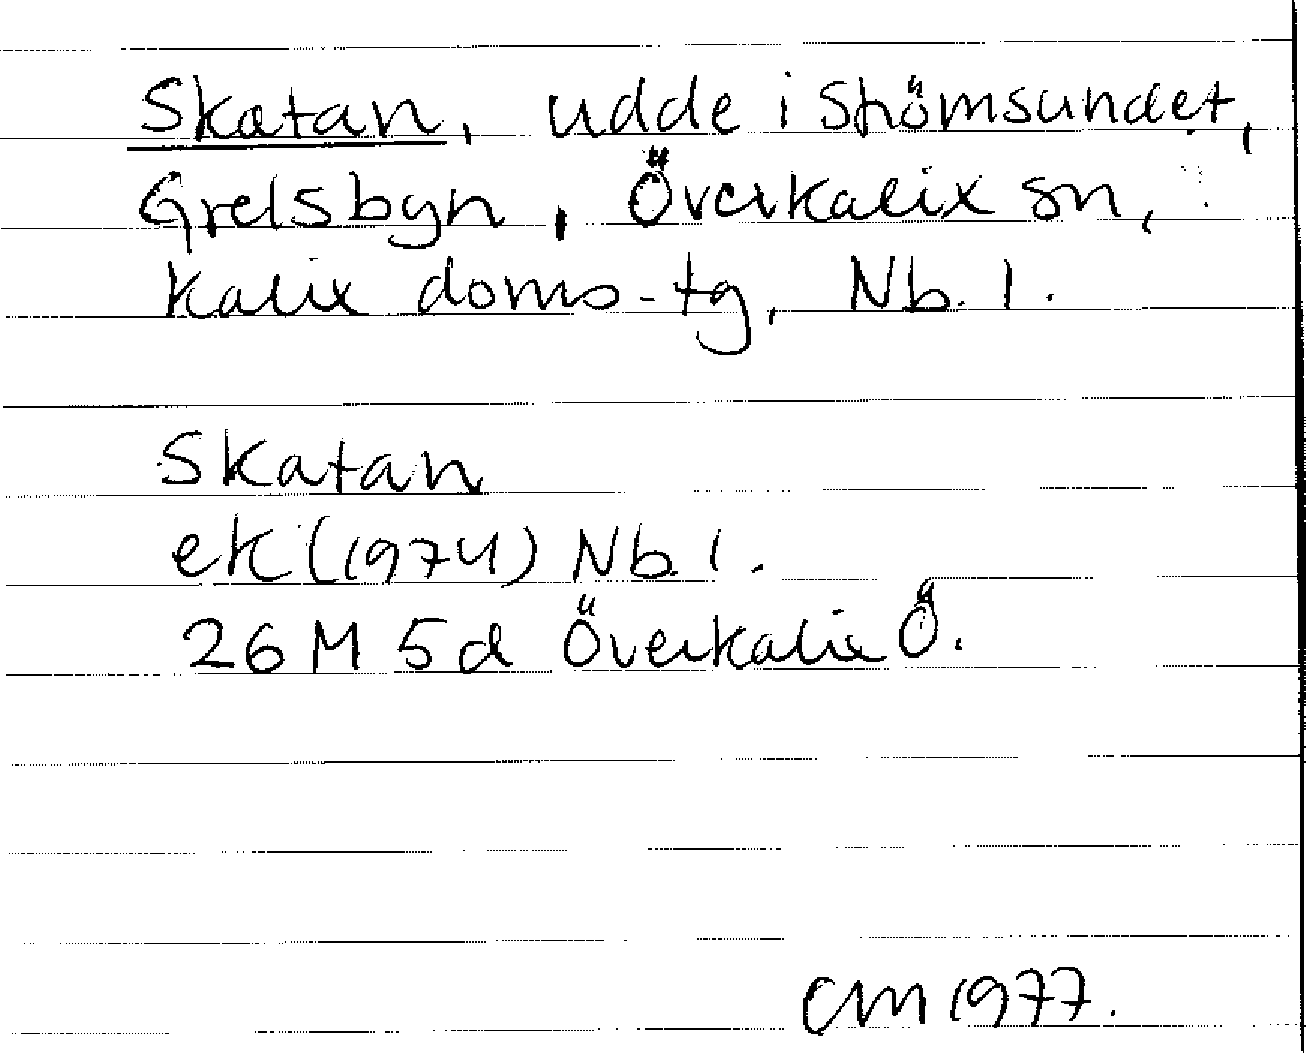 Skatan, udde i Strömsundet,
Grelsbyn, Överkalix sn,
Kalix doms-tg, Nb. l.
Skatan
ek (1974) Nb. l.
26 M 5d Överkalix Ö.
CM 1977.